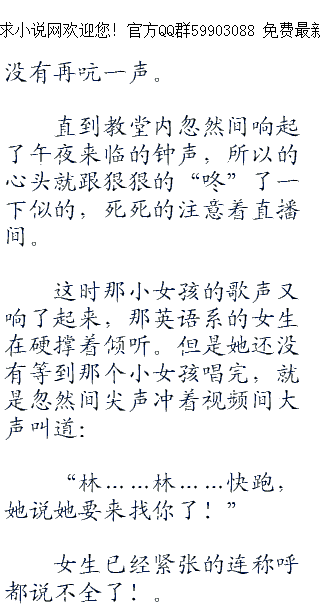 求小说网欢迎您！官方QQ群59903088 免费最新
没有再吭一声。
直到教堂内忽然间响起
了午夜来临的钟声，所以的
心头就跟狠狠的“咚”了一
下似的，死死的注意着直播
间。
这时那小女孩的歌声又
响了起来，那英语系的女生
在硬撑着倾听。但是她还没
有等到那个小女孩唱完，就
是忽然间尖声冲着视频间大
声叫道：
“林……林……快跑，
她说她要来找你了！”
女生已经紧张的连称呼
都说不全了！。